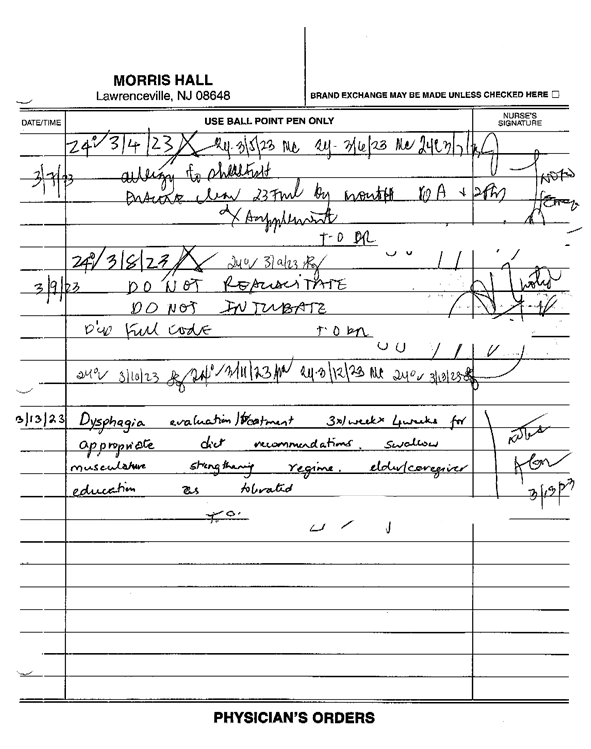 MORRIS HALL
Lawrenceville, NJ 08648
BRAND EXCHANGE MAY BE MADE UNLESS CHECKED HERE ☐
DATE/TIME USE BALL POINT PEN ONLY NURSE'S SIGNATURE
24° 3/4/23 24- 3/5/23 MC 24- 3/6/23 MC 24°
3/7/23 allergy to shellfish
Ensure clear 237ml by mouth 10A + 2pm noted
supplement
T.O DR
24° 3/8/23 24° 3/9/23
3/9/23 DO NOT RESUSCITATE noted
DO NOT INTUBATE
D/C Full CODE T.O DR
24° 3/10/23 24° 3/11/23 24- 3/12/23 MC 24° 3/13/23
3/13/23 Dysphagia evaluation/treatment 3x/week x 4weeks for
appropriate diet recommendations, swallow noted
musculature strengthening regime, elder/caregiver
education as tolerated 3/13/23
T.O.
PHYSICIAN'S ORDERS